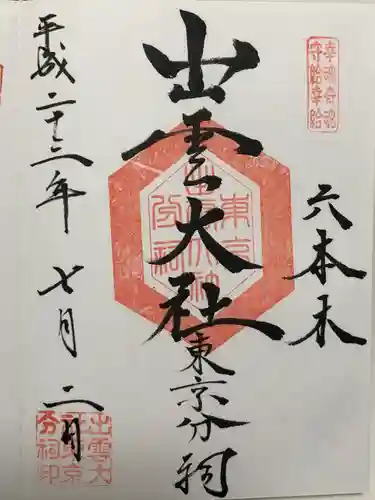 幸魂奇魂
守給幸給
六本木
出雲大社
東京分祠
東京
出雲大社
分祠
平成二十三年
七月二日
出雲大
社東京
分祠印